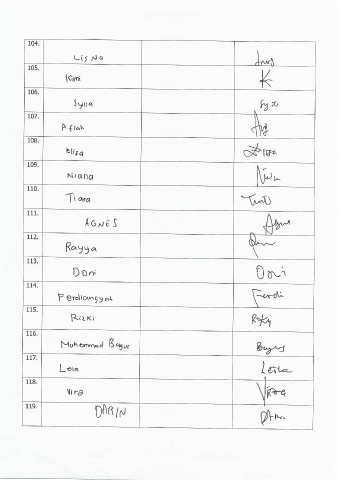 104. Lisna
105. Kimi K
106. Sylla
107. Aflah
108. Elisa Elisa
109. Niana
110. Tiara
111. AGNES Agnes
112. Rayya
113. Doni Doni
114. Ferdiansyah Ferdi
115. Rizki Rizki
116. Muhammad Bagus Bagus
117. Lela Leila
118. Vira Vira
119. DARIN